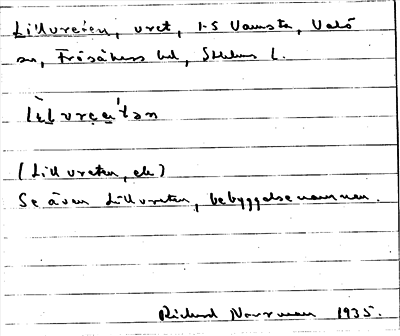 Lillvreten, vret, 1-5 Vamsta, Valö
sn, Frösåkers hd, Sthlms l.
(Lillvreten, ek)
Se även Lillvreten, bebyggelsenamnen.
Richard Norrman 1935.